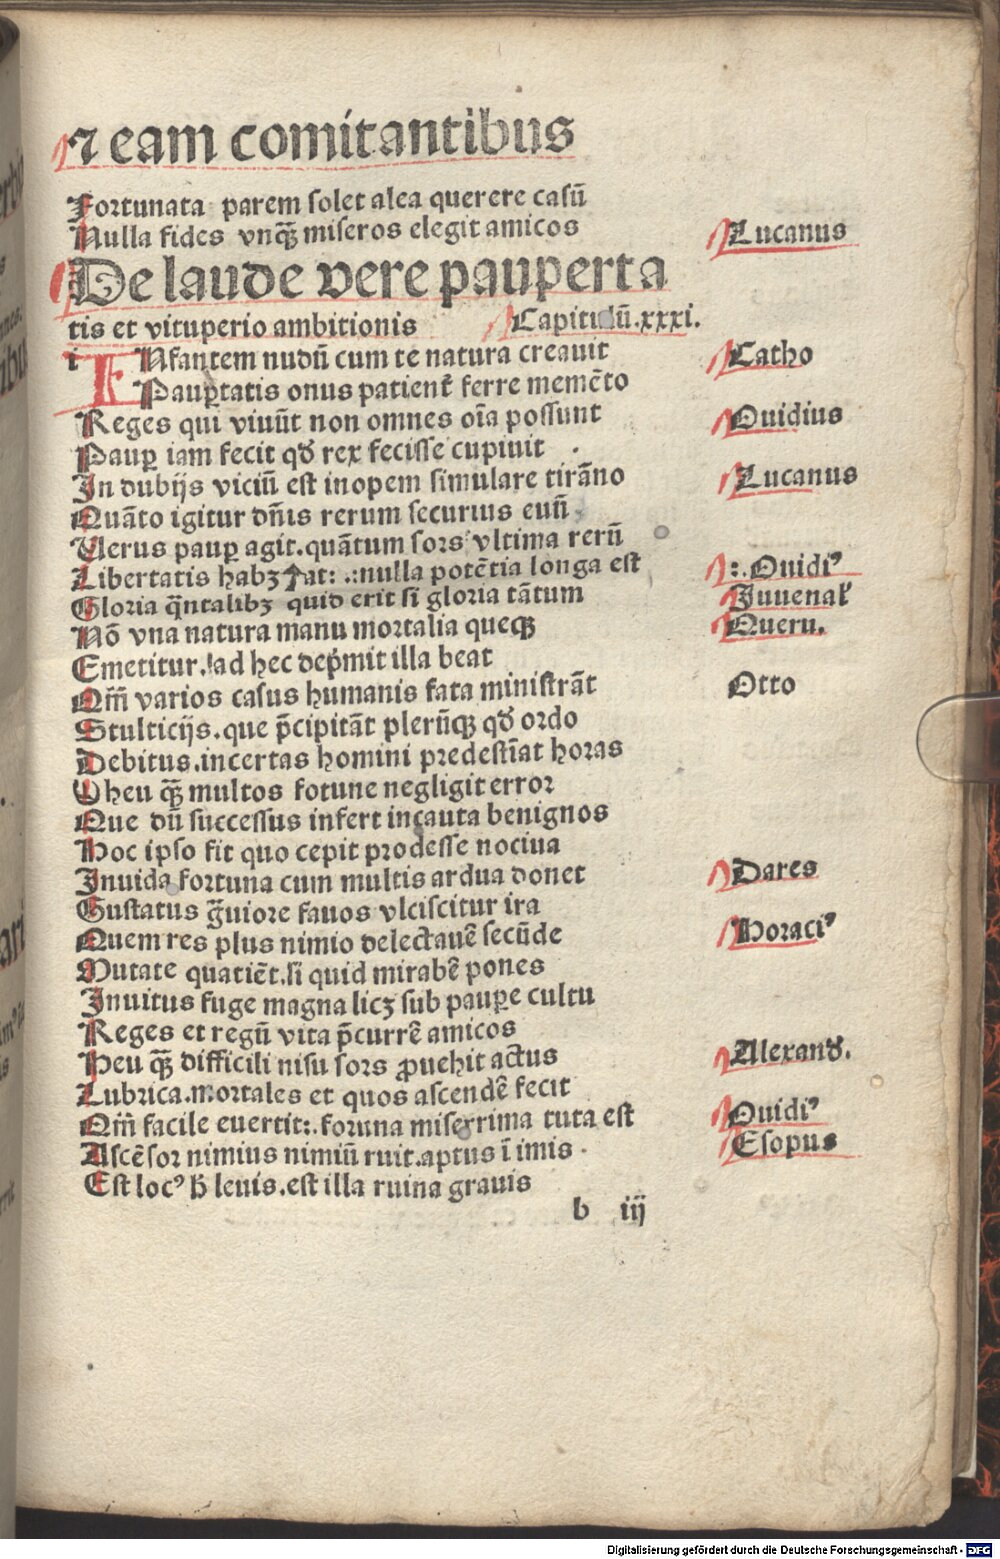 ⁊ eam comitantibus
Fortunata parem solet alea querere casū
Nulla fides vnqꝫ̄ miseros elegit amicos Lucanus
De laude vere pauperta
tis et vituperio ambitionis Capitulū.xxxi.
i INfantem nudū cum te natura creauit Catho
Paupꝑtatis onus patient̄ ferre memēto
Reges qui viuūt non omnes oīa possunt Ouidius
Paupꝑ iam fecit qd̄ rex fecisse cupiuit .
In dubijs viciū est inopem simulare tirāno Lucanus
Quāto igitur dn̄is rerum securius eusū
Uerus paupꝑ agit.quātum sors vltima rerū
Libertatis habꝫ at: .:nulla potētia longa est :.Ouidiꝰ
Gloria q̄ntalibꝫ quid erit si gloria tātum Juuenal̓
Nō vna natura manu mortalia queqꝫ Queru.
Emetitur. ad hec dep̄mit illa beat
Qm̄ varios casus humanis fata ministrāt Otto
Stulticijs.que p̄cipitāt plerūqꝫ qd̄ ordo
Debitus.incertas homini predestīat horas
Oheu qꝫ̄ multos fotune negligit error
Que dū successus infert incauta benignos
Hoc ipso fit quo cepit prodesse nociua
Inuida fortuna cum multis ardua donet Dares
Gustatus g̃uiore fauos vlciscitur ira
Quem res plus nimio delectauē secūde Horaciꝰ
Mutate quatiēt.si quid mirabē pones
Inuitus fuge magna licꝫ sub paupꝑe cultu
Reges et regū vita p̄currē amicos
Heu qꝫ̄ difficili nisu sors ꝓuehit actus Alexand̄.
Lubrica.mortales et quos ascendē fecit
Qm̄ facile euertit:.foruna miserrima tuta est Ouidiꝰ
Ascēsor nimius nimiū ruit.aptus ī imis . Esopus
Est locꝰ h̄ leuis.est illa ruina grauis
b iij
Digitalisierung gefördert durch die Deutsche Forschungsgemeinschaft - DFG